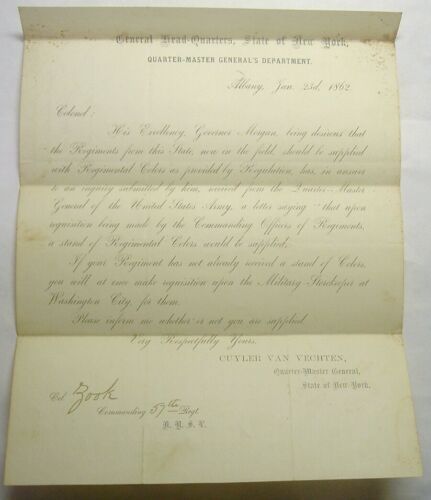 General Head-Quarters, State of New York,
QUARTER-MASTER GENERAL'S DEPARTMENT.
Albany, Jan. 23d, 1862.
Colonel:
His Excellency, Governor Morgan, being desirous that
the Regiments from this State, now in the field, should be supplied
with Regimental Colors as provided by Regulation, has, in answer
to an inquiry submitted by him, received from the Quarter-Master
General of the United States Army, a letter saying "that upon
requisition being made by the Commanding Officers of Regiments,
a stand of Regimental Colors would be supplied;"
If your Regiment has not already received a stand of Colors,
you will at once make requisition upon the Military-Storekeeper at
Washington City, for them.
Please inform me whether or not you are supplied.
Very Respectfully Yours.
CUYLER VAN VECHTEN,
Quarter-Master General,
State of New-York.
Col Zook
Commanding 57th Regt.
N. Y. S. V.